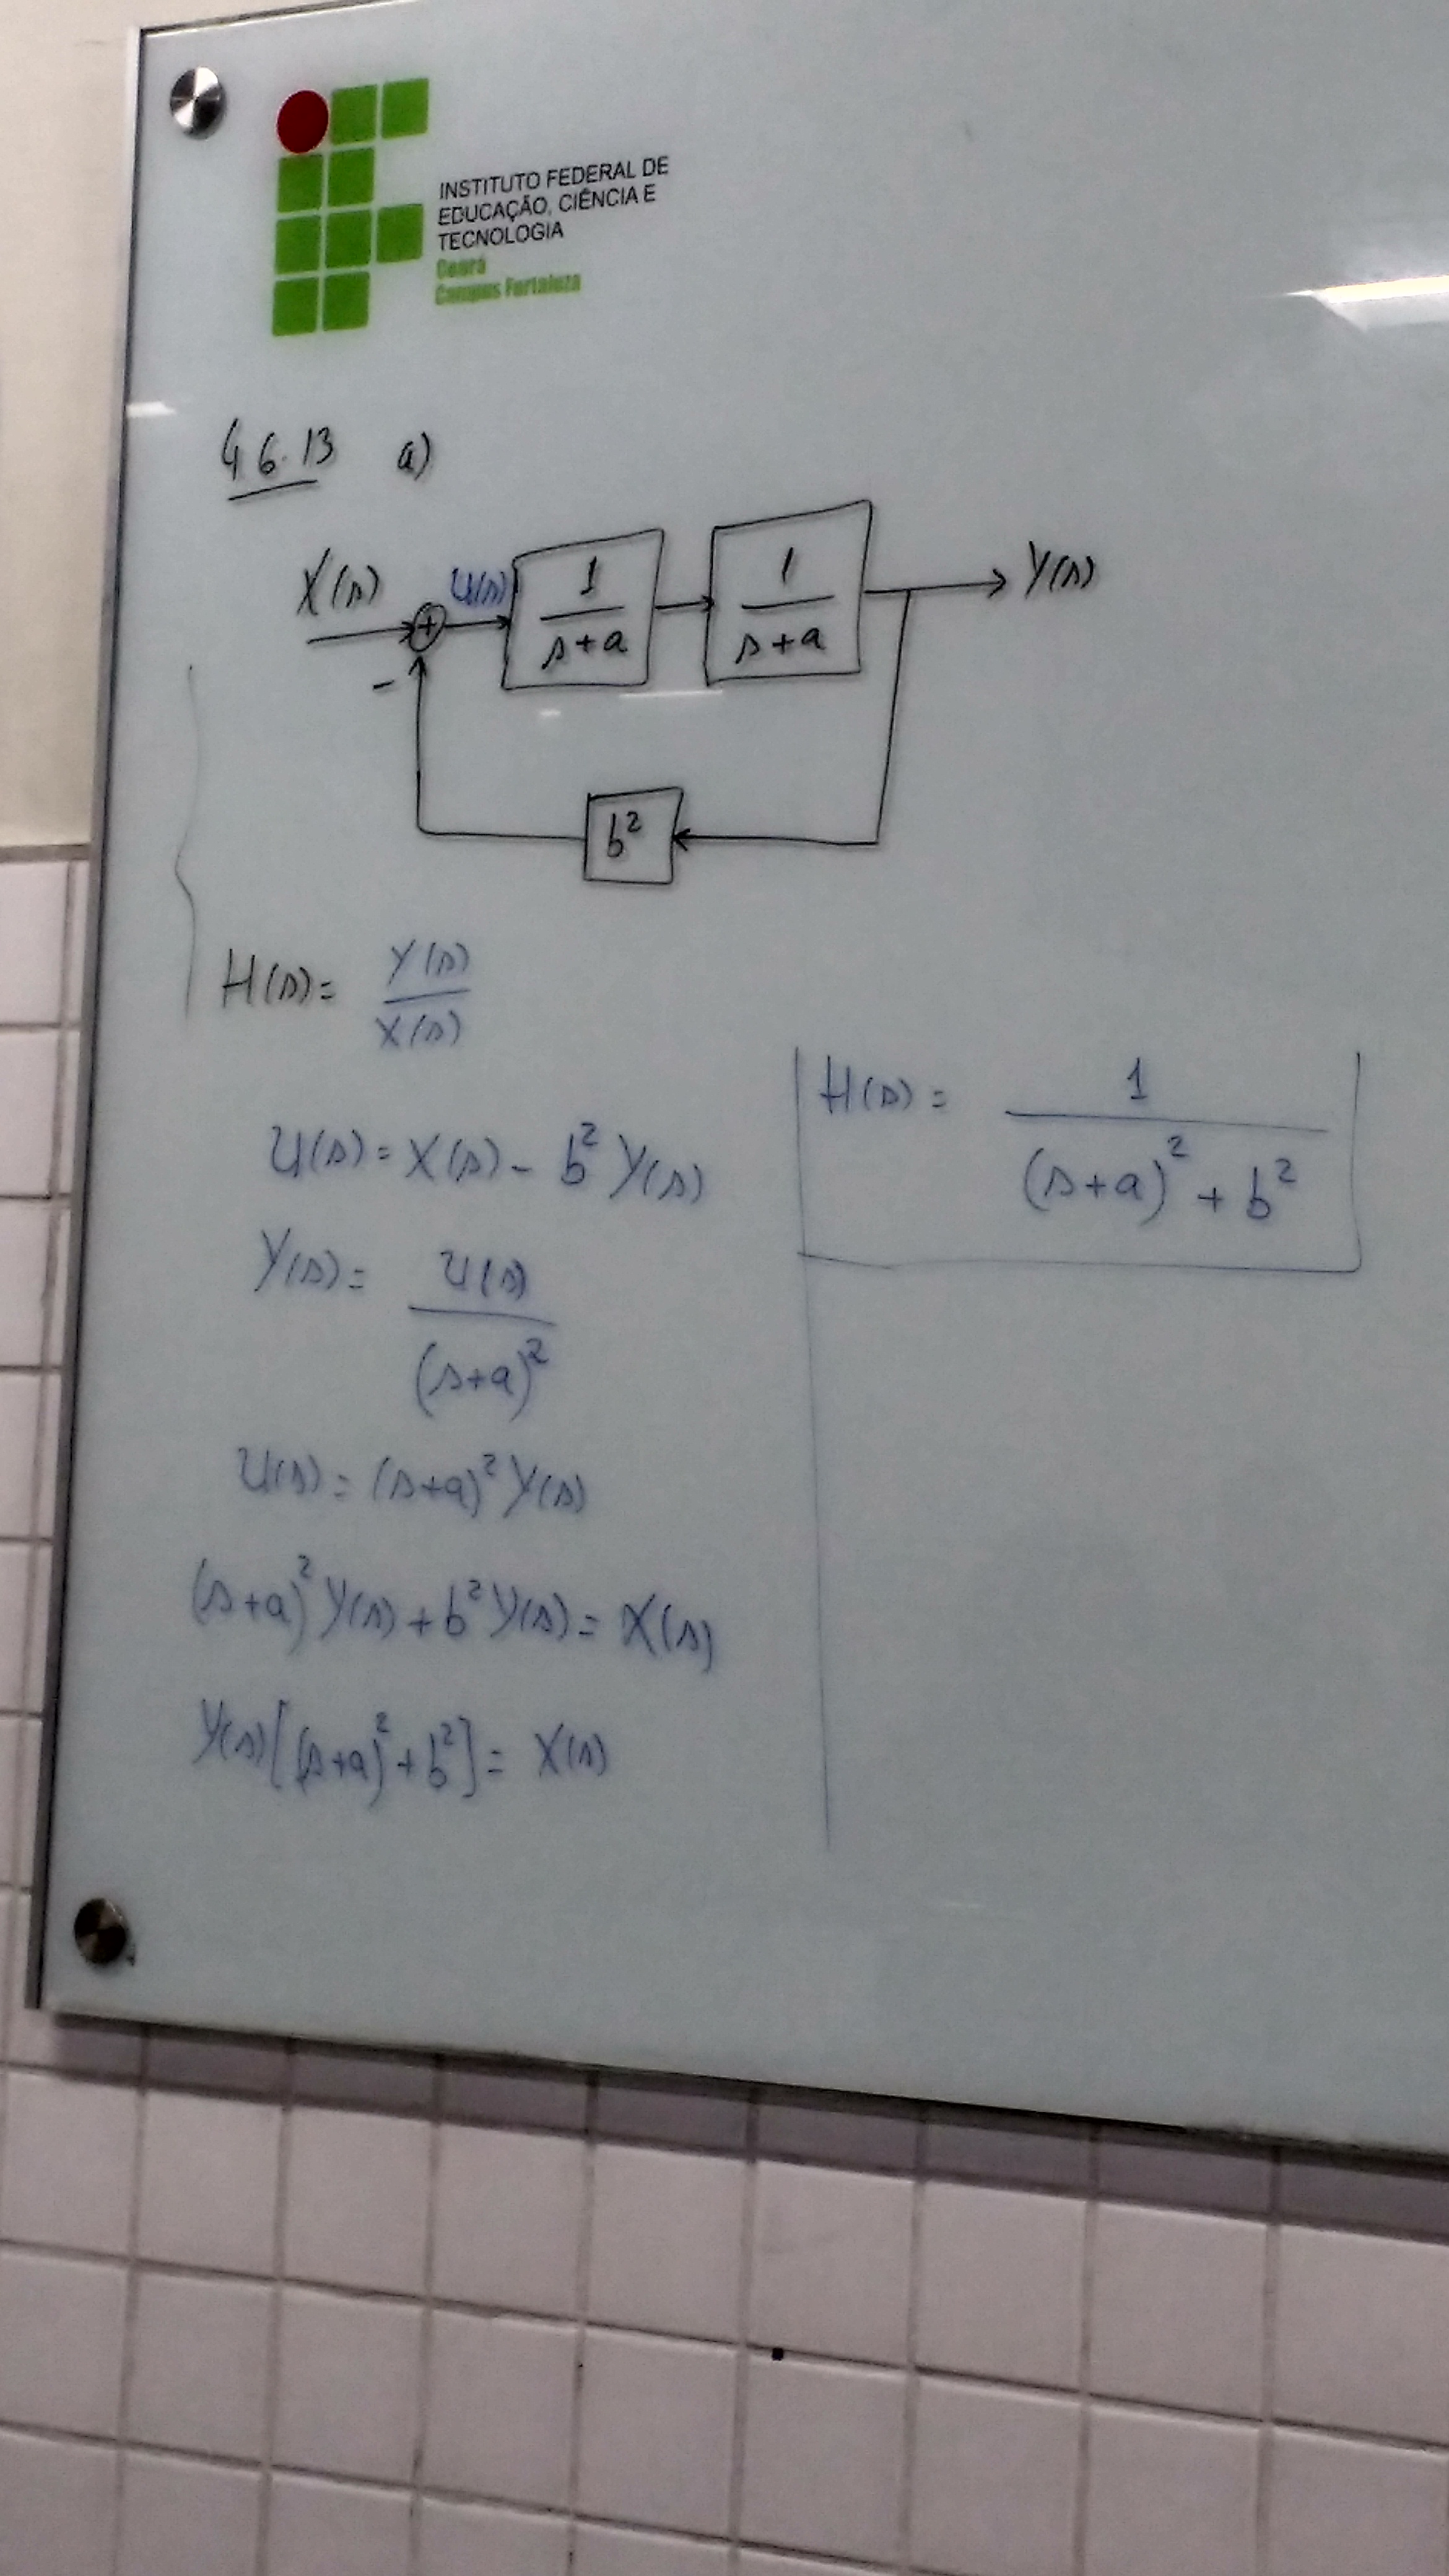 INSTITUTO FEDERAL DE
EDUCAÇÃO, CIÊNCIA E
TECNOLOGIA
Ceará
Campus Fortaleza
4.6.13 a)
X(s) + U(s) 1/(s+a) 1/(s+a) Y(s)
-
b²
H(s) = Y(s)/X(s)
U(s) = X(s) - b² Y(s)
Y(s) = U(s)/(s+a)²
U(s) = (s+a)² Y(s)
(s+a)² Y(s) + b² Y(s) = X(s)
Y(s)[(s+a)² + b²] = X(s)
H(s) = 1/((s+a)² + b²)